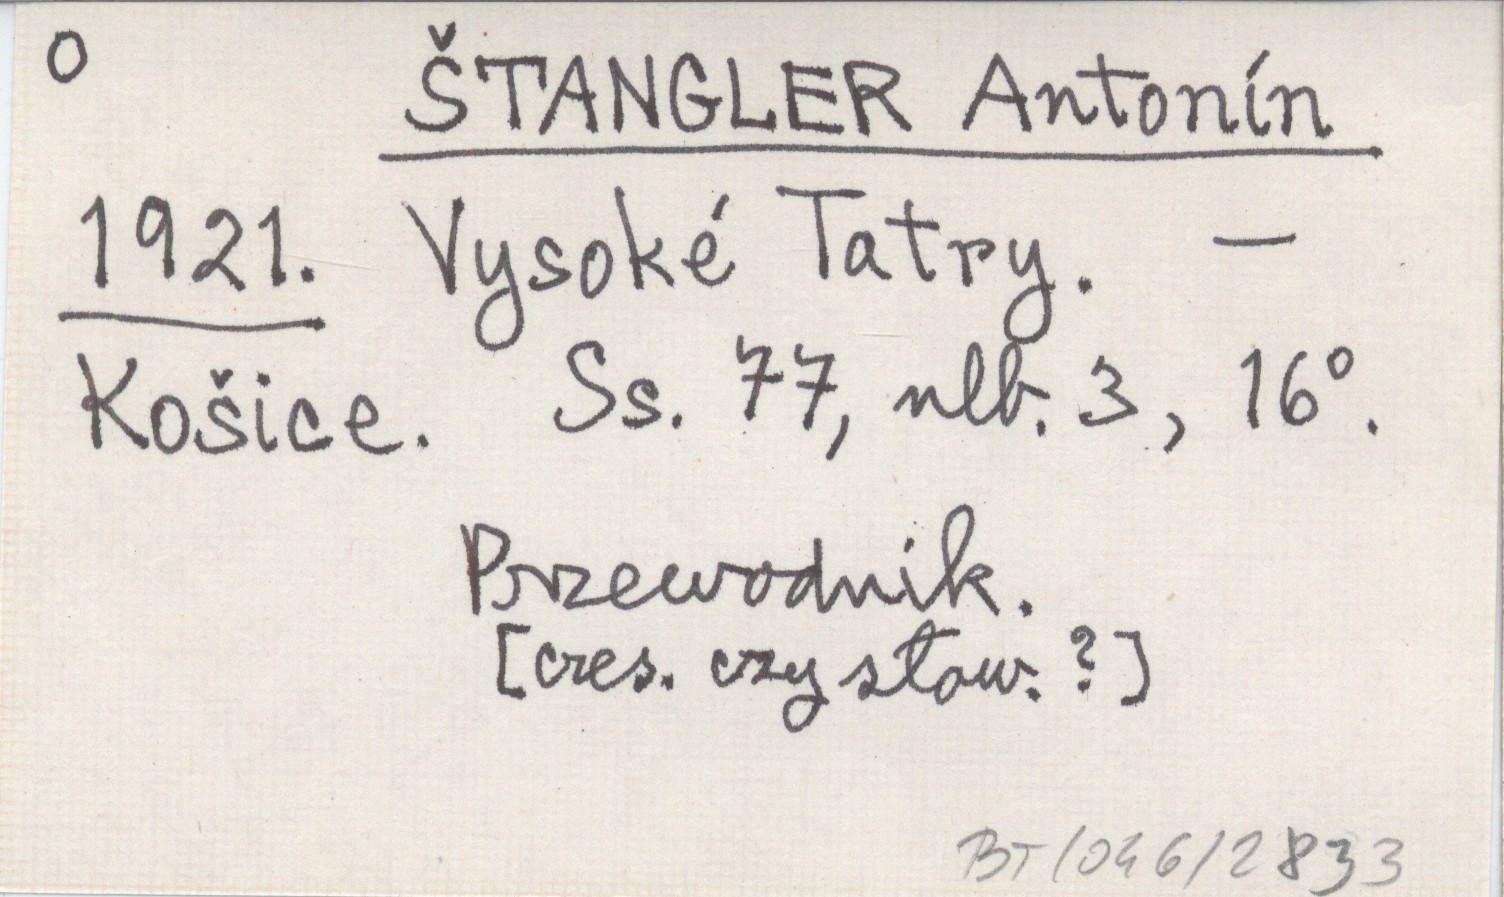 O
ŠTANGLER Antonín
1921. Vysoké Tatry. —
Košice. Ss. 77, nlb. 3, 16°.
Przewodnik.
[czes. czy słow. ?]
BT/046/2833